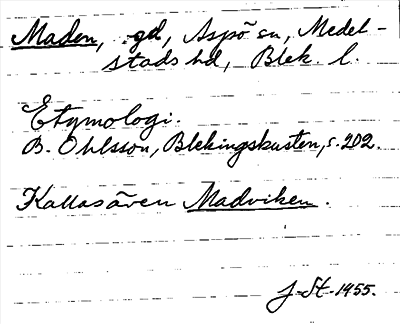 Maden, gd, Aspö sn, Medel-
stads hd, Blek. l.
Etymologi.
B. Ohlsson, Blekingskusten, s. 202.
Kallas även Madviken.
J. St. 1955.